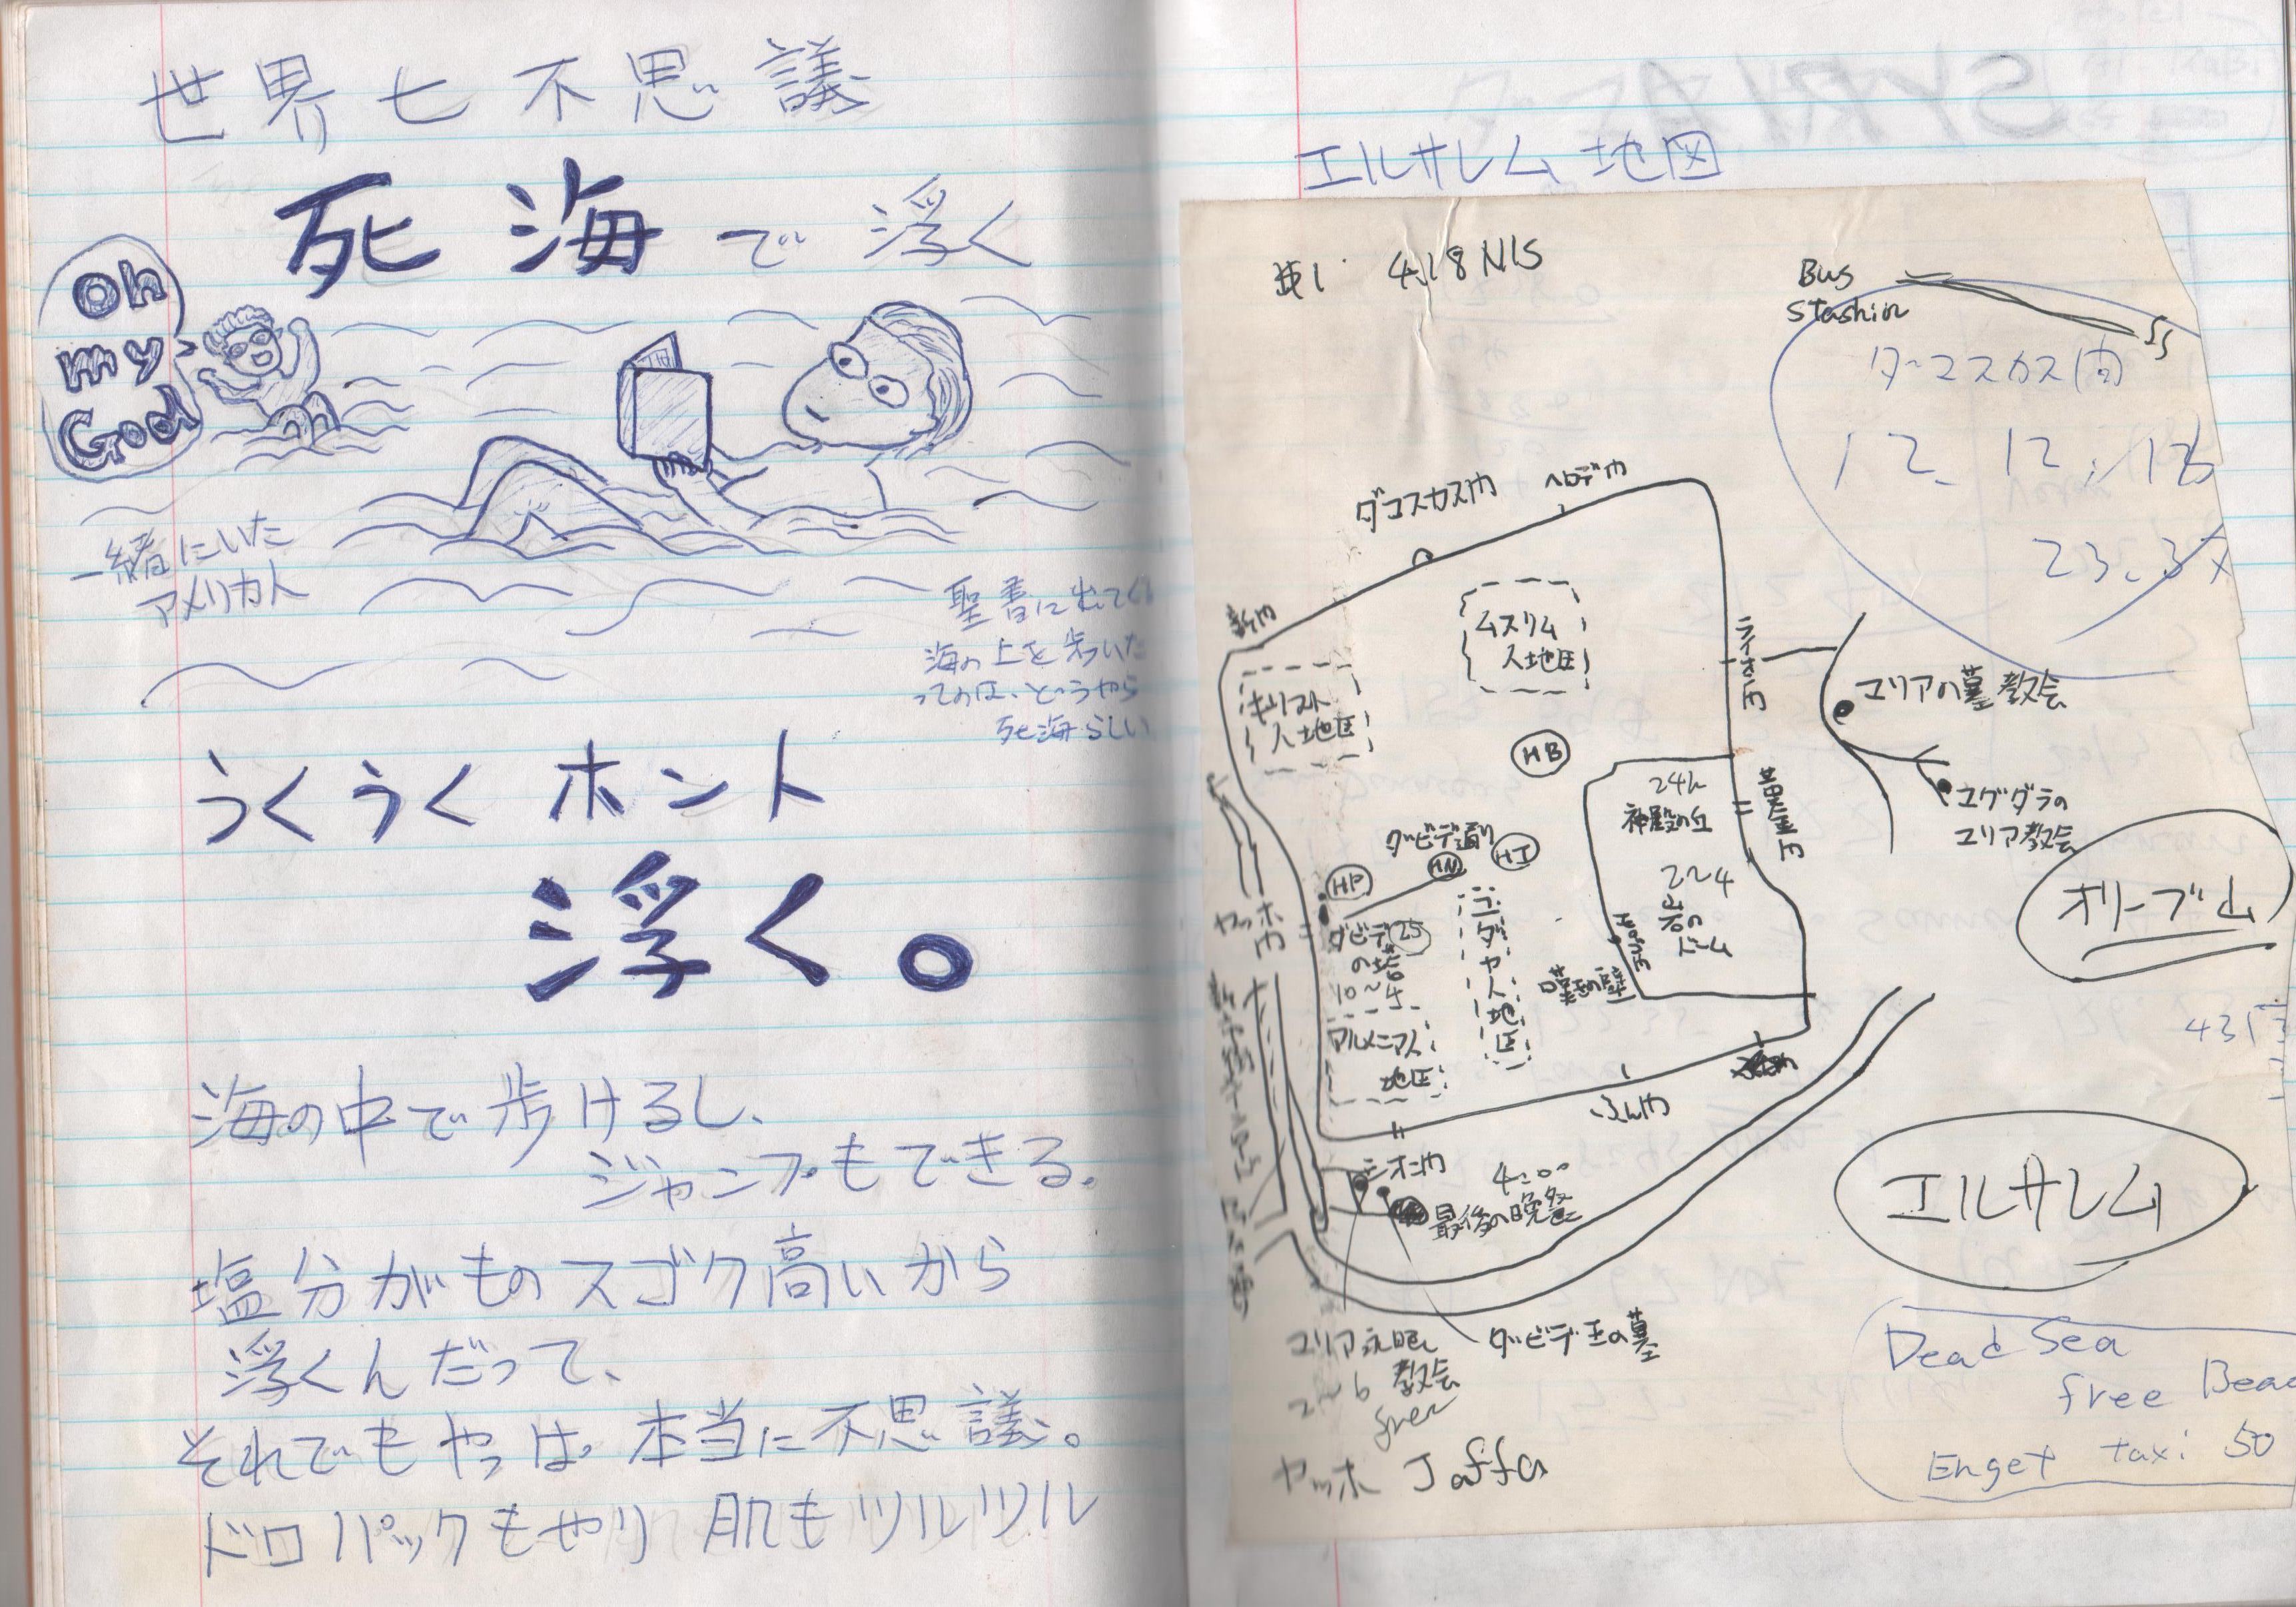 世界七不思議
死海で浮く
Oh
my
God
一緒にいた
アメリカ人
聖書に出てくる
海の上を歩いた
ってのは、どうやら
死海らしい
うくうくホント
浮く。
海の中で歩けるし、
ジャンプもできる。
塩分がものスゴク高いから
浮くんだって、
それでもやっぱ本当に不思議。
ドロパックもやり肌もツルツル
SYRIA
エルサレム地図
#1 4.18 NIS
Bus
Stashin
ダーマスカス門
12. 12.
23.
ダマスカス門 ヘロデ門
新門
ムスリム
人地区
キリスト
人地区
ライオン門
マリアの墓教会
マグダラの
マリア教会
オリーブ山
HB
24h
神殿の丘
黄金門
ダビデ通り
HP
HN
HI
2~4
岩の
ドーム
ヤッホ門
ダビデ 25
の塔
10~4
ユダヤ人地区
嘆きの壁
アルメニア人
地区
ふん門
シオン門
4:00
最後の晩餐
エルサレム
マリア永眠
教会
2~6
free
ダビデ王の墓
ヤッホ Jaffa
431
Dead Sea
free Beac
Enget taxi 50